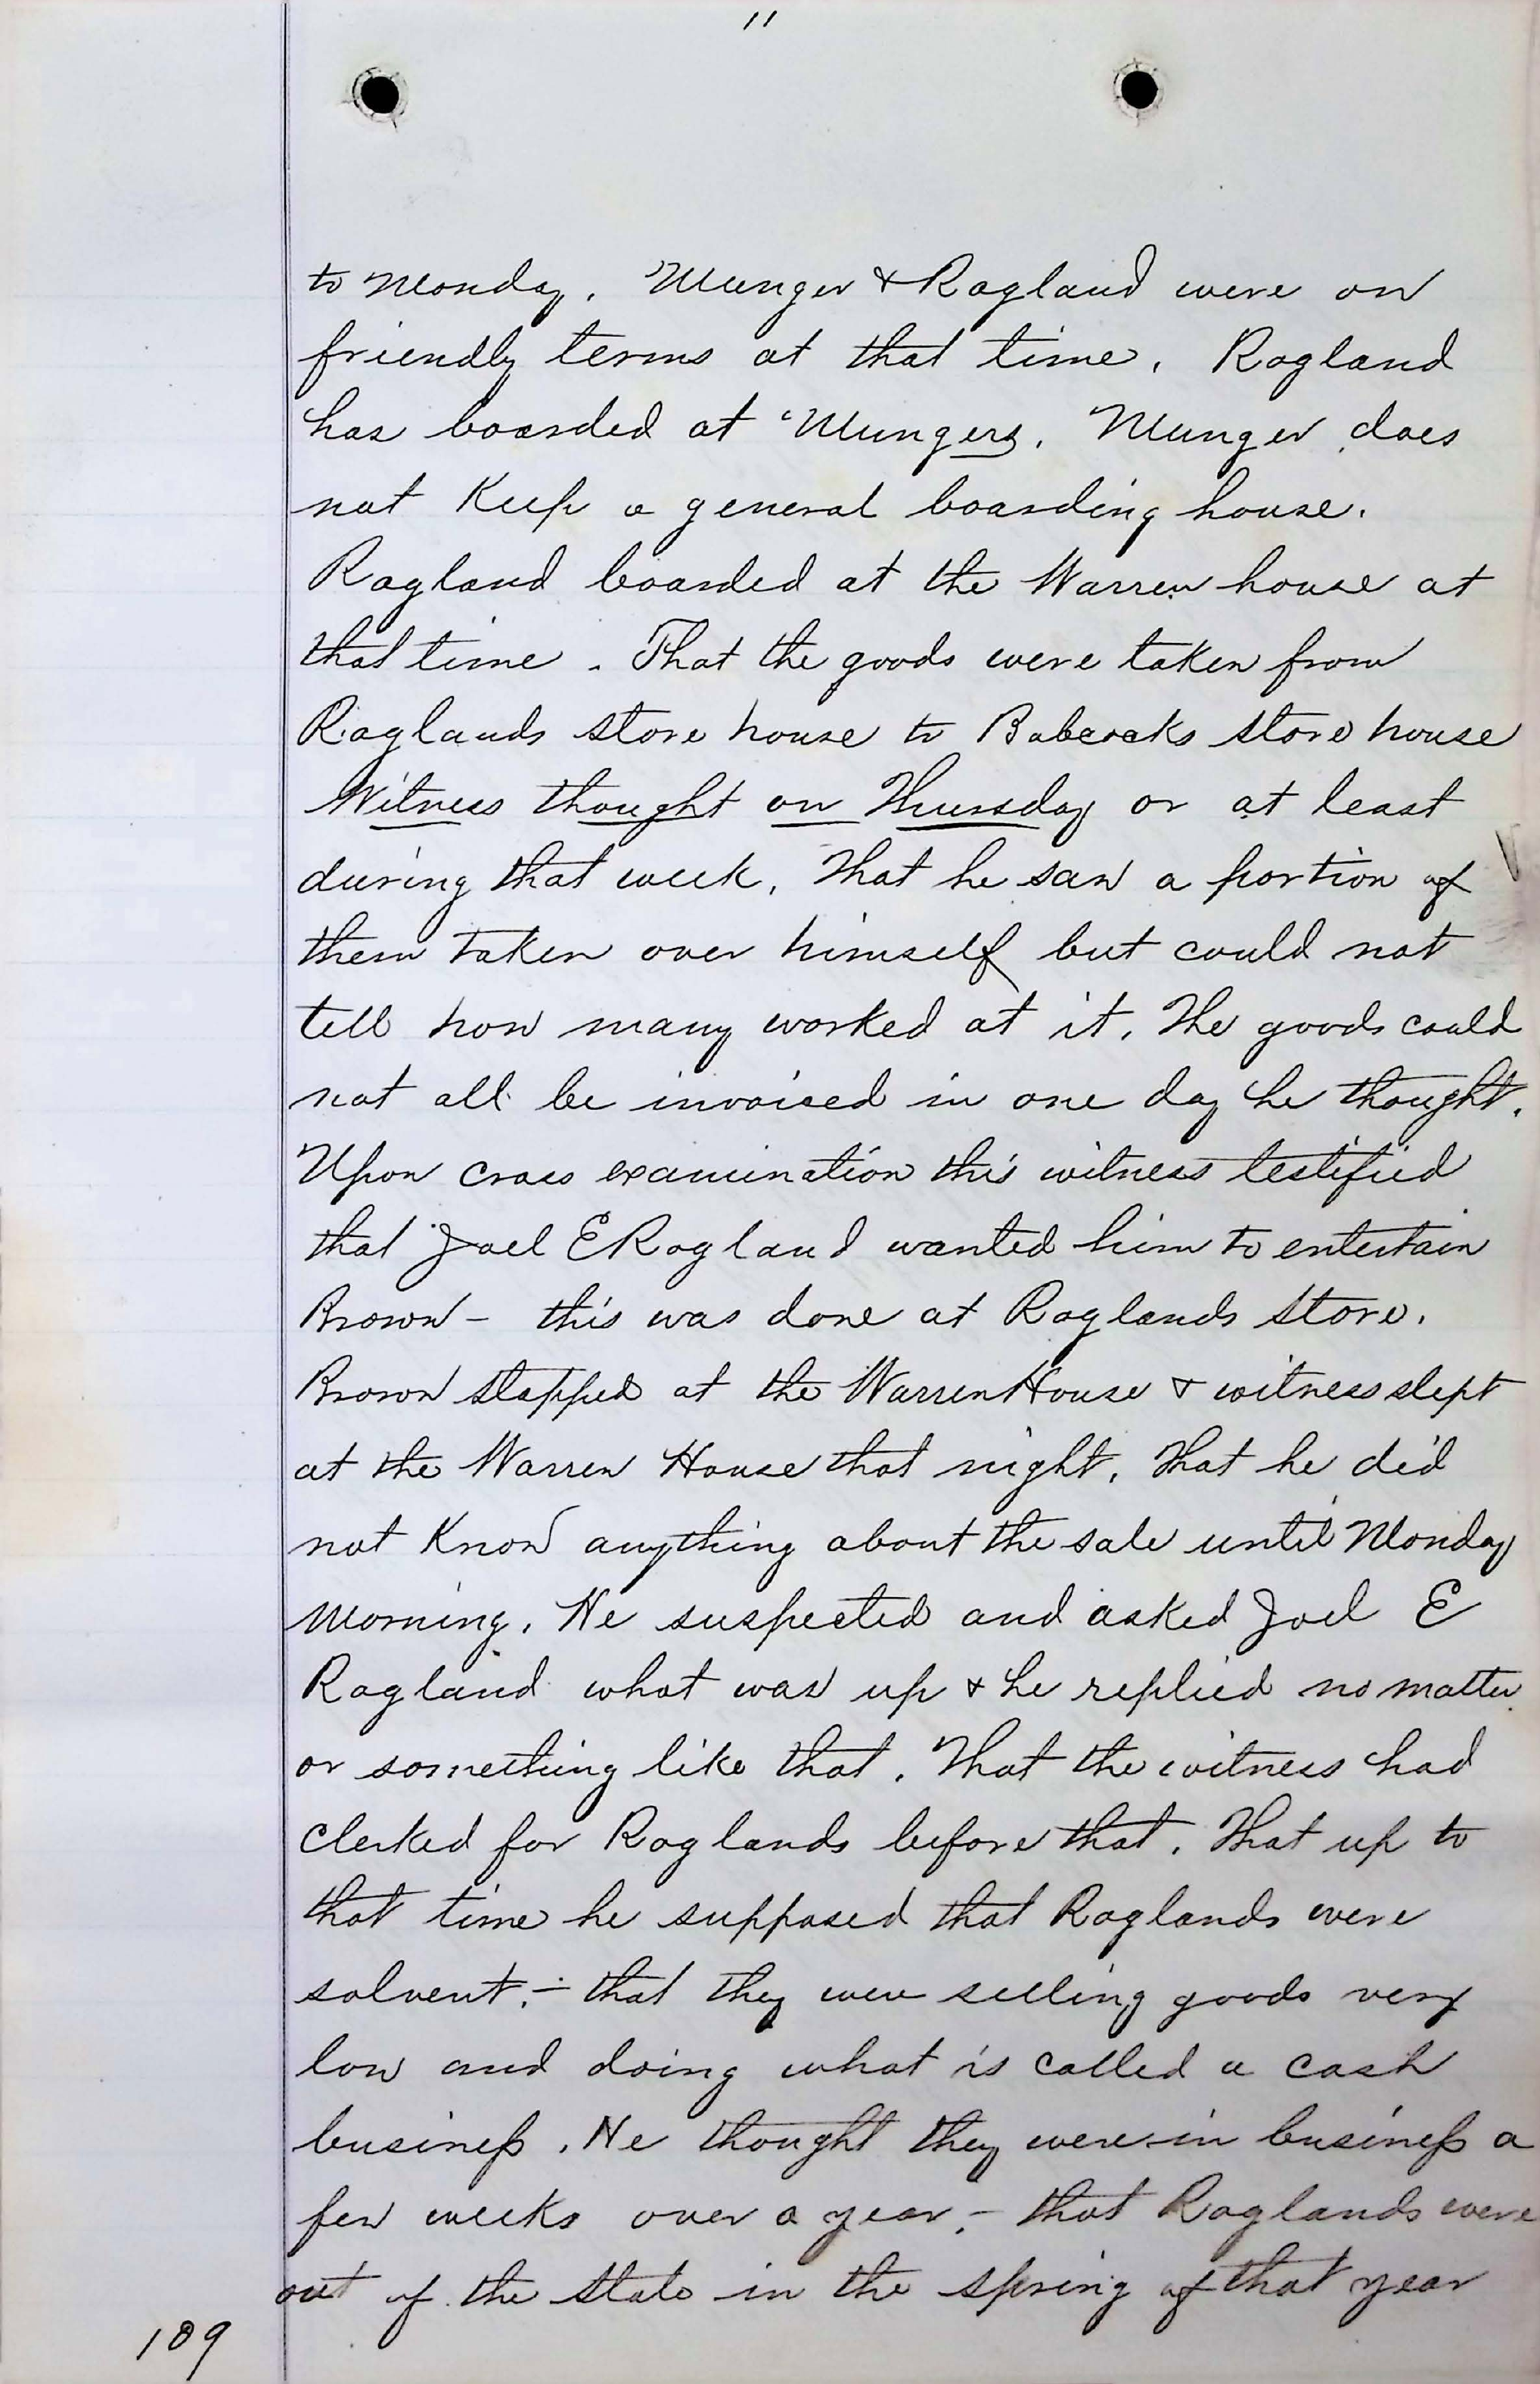 11
to Monday. Munger & Ragland were on
friendly terms at that time. Ragland
has boarded at Mungers. Munger does
not Keep a general boarding house.
Ragland boarded at the Warren house at
that time. That the goods were taken from
Raglands store house to Babcocks store house
Witness thought on Thursday or at least
during that week. That he saw a portion of
them taken over himself but could not
tell how many worked at it. The goods could
not all be invoiced in one day he thought.
Upon cross examination this witness testified
that Joel E Ragland wanted him to entertain
Brown – this was done at Raglands store.
Brown stopped at the Warren House & witness slept
at the Warren House that night. That he did
not Know anything about the sale until Monday
morning. He suspected and asked Joel E
Ragland what was up & he replied no matter
or something like that. That the witness had
clerked for Raglands before that. That up to
that time he supposed that Raglands were
solvent. – that they were selling goods very
low and doing what is called a cash
business. He thought they were in business a
few weeks over a year. – that Raglands were
out of the state in the spring of that year
109